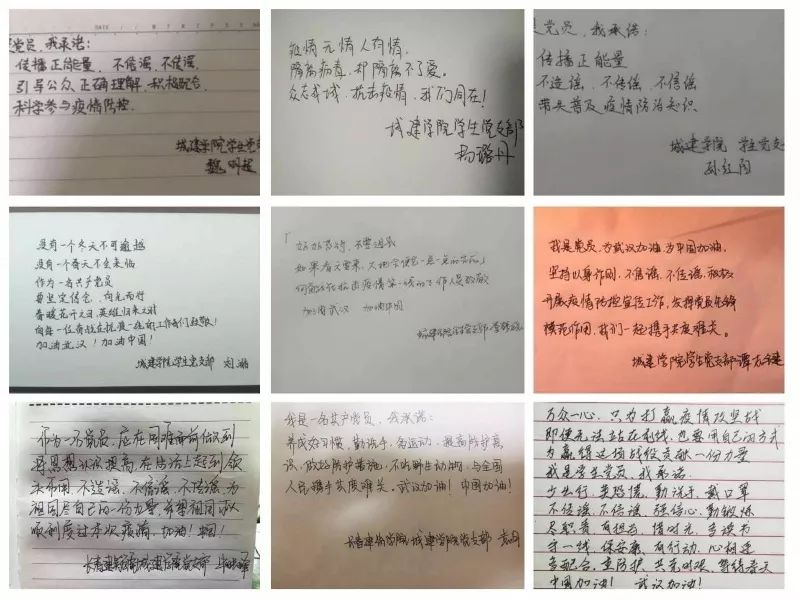 党员，我承诺：
传播正能量，不信谣、不传谣，
引导公众正确理解、积极配合、
科学参与疫情防控。
城建学院学生党支
疫情无情人有情，
隔离病毒，却隔离不了爱。
众志成城，抗击疫情，我们同在！
城建学院学生党支部
杨璐丹
党员，我承诺：
传播正能量
不造谣、不传谣、不信谣
带头普及疫情防治知识
城建学院 学生党支
孙红阳
没有一个冬天不可逾越
没有一个春天不会来临
作为一名共产党员
要坚定信念，向光而行
春暖花开之日，英雄归来之时
向每一位奋战在抗疫一线的工作者们致敬！
加油武汉！加油中国！
城建学院学生党支部 刘
如果春天要来，大地会使它一点一点的完成」
向奋战在抗击疫情第一线的工作人员致敬
加油武汉 加油中国
我是党员，为武汉加油，为中国加油，
坚持以身作则，不信谣、不传谣，积极
开展疫情防控宣传工作，发挥党员先锋
模范作用，我们一起携手共度难关。
城建学院学生党支部
作为一名党员，应在困难面前做到
将思想认识提高，在政治上起到领
头作用，不造谣、不信谣、不传谣，为
祖国尽自己的一份力量，希望祖国可以
顺利度过本次疫情，加油！中国！
长春建筑学院城建学院党支部
我是一名共产党员，我承诺：
养成好习惯，勤洗手，多运动，提高防护意
识，做好防护措施，不吃野生动物，与全国
人民携手共度难关。武汉加油！中国加油！
长春建筑学院城建学院党支部
万众一心，只为打赢疫情攻坚战
即使无法站在前线，也要用自己的方式
为赢得这场战役贡献一份力量
我是学生党员，我承诺：
少出行，莫恐慌，勤洗手，戴口罩
不信谣，不传谣，强信心，勤锻炼
尽职责，有担当，惜时光，多读书
守一线，保安康，有行动，心相连
多配合，重防护，共克时艰，等待春天
中国加油！ 武汉加油！